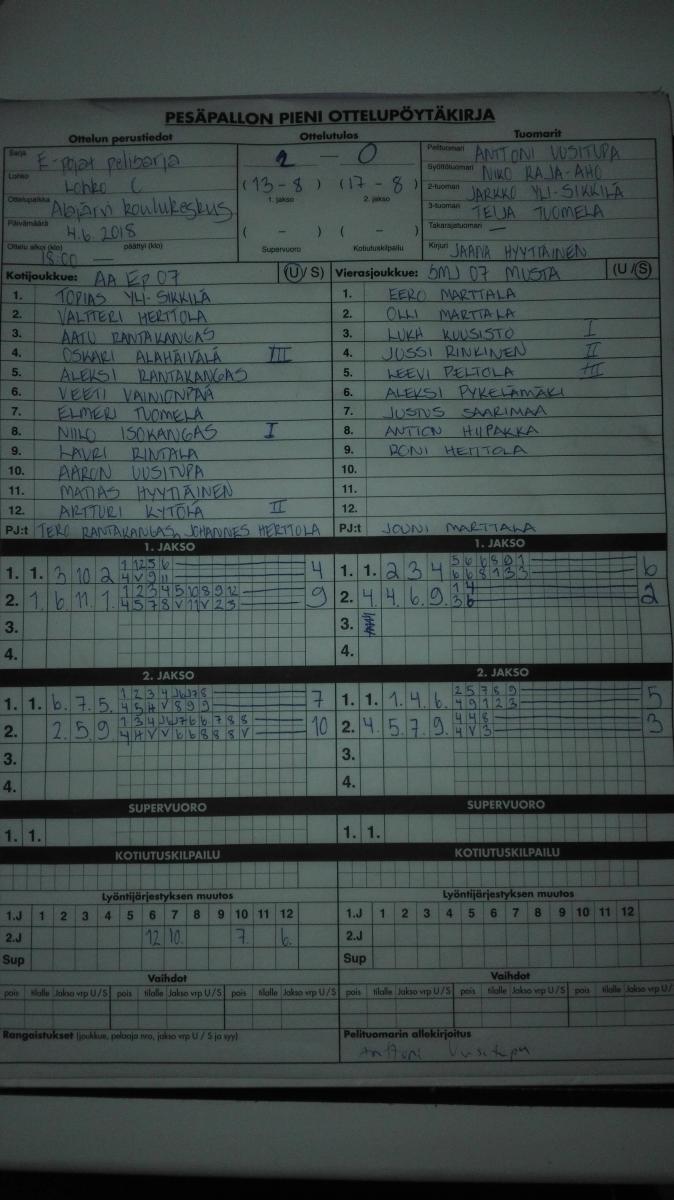 PESÄPALLON PIENI OTTELUPÖYTÄKIRJA
Ottelun perustiedot Ottelutulos Tuomarit
Sarja E-pojat pelisarja
Lohko Lohko C
Ottelupaikka Alajärvi koulukeskus
Päivämäärä 4.6.2018
Ottelu alkoi (klo) 18:00 päättyi (klo) —
2 — 0
(13 - 8) (17 - 8)
1. jakso 2. jakso
( - ) ( - )
Supervuoro Kotiutuskilpailu
Pelituomari ANTTONI UUSITUPA
Syöttötuomari NIKO RAJA-AHO
2-tuomari JARKKO YLI-SIKKILÄ
3-tuomari TEIJA TUOMELA
Takarajatuomari —
Kirjuri JAANA HYYTIÄINEN
Kotijoukkue: AA EP 07 (U/ S)
1. TOPIAS YLI-SIKKILÄ
2. VALTTERI HERTTOLA
3. AATU RANTAKANGAS
4. OSKARI ALAHÄIVÄLÄ III
5. ALEKSI RANTAKANGAS
6. VEETI VAINIONPÄÄ
7. ELMERI TUOMELA
8. NIILO ISOKANGAS I
9. LAURI RINTALA
10. AARON UUSITUPA
11. MATIAS HYYTIÄINEN
12. ARTTURI KYTÖLÄ II
PJ:t TERO RANTAKANGAS, JOHANNES HERTTOLA
Vierasjoukkue: SMJ 07 MUSTA (U /S)
1. EERO MARTTALA
2. OLLI MARTTALA
3. LUKA KUUSISTO I
4. JUSSI RINKINEN II
5. LEEVI PELTOLA III
6. ALEKSI PYKELÄMÄKI
7. JUSTUS SAARIMAA
8. ANTTON HIIPAKKA
9. RONI HERTTOLA
10.
11.
12.
PJ:t JOUNI MARTTALA
1. JAKSO
1. 1. 3 10 2 1 12 5 6 4
4 V 9 11
2. 1. 6. 11. 1. 1 2 3 4 5 10 8 9 12 9
4 5 7 8 V 11 V 2 3
3.
4.
1. JAKSO
1. 1. 2 3 4 5 6 6 8 9 1 6
6 6 8 1 3 3
2. 4 4. 6. 9. 1 4 2
3 6
3.
4.
2. JAKSO
1. 1. 6. 7. 5. 7
2. 2. 5. 9. 10
3.
4.
2. JAKSO
1. 1. 1. 4. 6. 2 5 7 8 9 5
4 9 1 2 3
2. 4. 5. 7. 9. 4 4 8 3
4 V 3
3.
4.
SUPERVUORO
1. 1.
SUPERVUORO
1. 1.
KOTIUTUSKILPAILU
KOTIUTUSKILPAILU
Lyöntijärjestyksen muutos
1.J 1 2 3 4 5 6 7 8 9 10 11 12
2.J 12 10. 7. 6.
Sup
Lyöntijärjestyksen muutos
1.J 1 2 3 4 5 6 7 8 9 10 11 12
2.J
Sup
Vaihdot
pois tilalle Jakso vrp U / S pois tilalle Jakso vrp U / S pois tilalle Jakso vrp U / S
Vaihdot
pois tilalle Jakso vrp U / S pois tilalle Jakso vrp U / S pois tilalle Jakso vrp U / S
Rangaistukset (joukkue, pelaaja nro, jakso vrp U / S ja syy)
Pelituomarin allekirjoitus
Anttoni Uusitupa